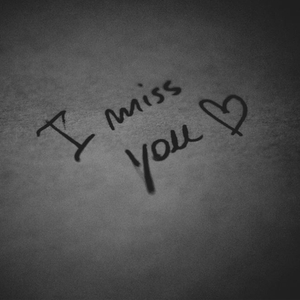 I miss
you ♡